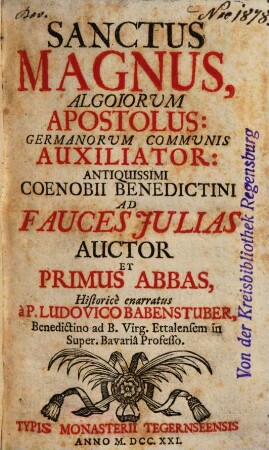 Bav.
SANCTUS
MAGNUS,
ALGOIORUM
APOSTOLUS:
GERMANORUM COMMUNIS
AUXILIATOR:
ANTIQUISSIMI
COENOBII BENEDICTINI
AD
FAUCES JULIAS
AUCTOR
ET
PRIMUS ABBAS,
Historicè enarratus
à P. LUDOVICO BABENSTUBER,
Benedictino ad B. Virg. Ettalensem in
Super. Bavariâ Professo.
TYPIS MONASTERII TEGERNSEENSIS
ANNO M. DCC. XXI.
Von der Kreisbibliothek Regensburg